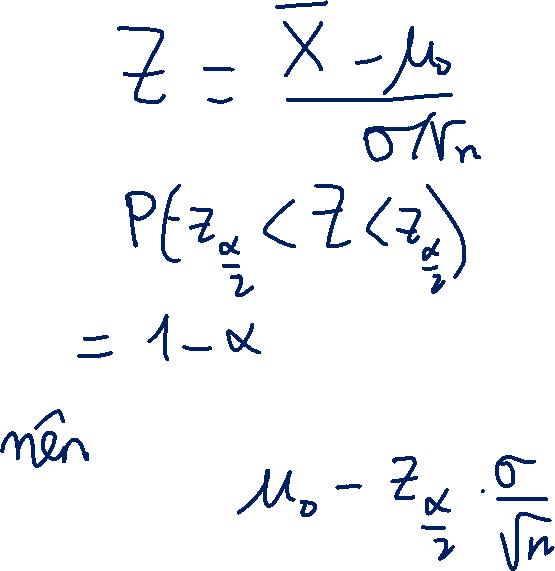 Z = (X̄ - μ₀) / (σ/√n)
P(-z_{α/2} < Z < z_{α/2})
= 1 - α
nên
μ₀ - z_{α/2} · σ/√n